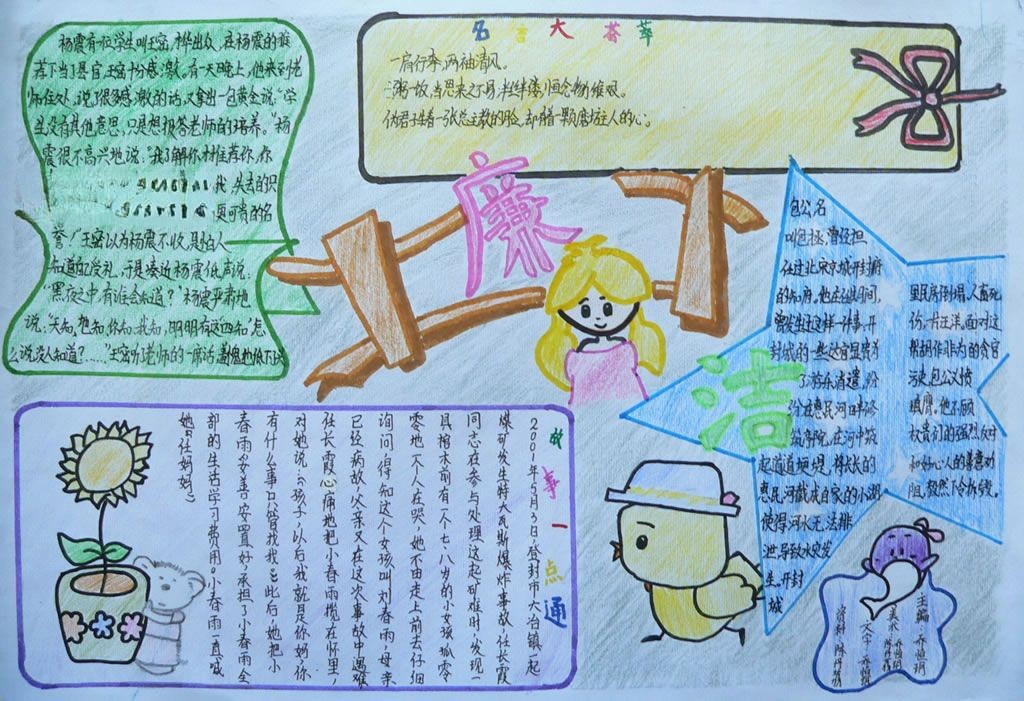 杨震有一位学生叫王密,才华出众,在杨震的推
荐下当了县官,王密十分感激。有一天晚上,他来到老
师住处,说了很多感激的话,又拿出一包黄金说:“学
生没有其他意思,只是想报答老师的培养。”杨
震很不高兴地说:“我了解你才推荐你,你
我,失去的只
更可贵的名
誉!”王密以为杨震不收,是怕人
知道他受礼,于是凑近杨震低声说:
“黑夜之中,有谁会知道?”杨震严肃地
说:“天知,地知,你知,我知,明明有这四知,怎
么说没人知道?……”王密听了老师的一席话,羞愧地
名言大荟萃
一肩行李,两袖清风。
一粥一饭,当思来之不易,半丝半缕,恒念物力维艰。
伪君子生着一张总主教的脸,却藏着一颗磨坊主人的心。
廉
洁
包公,名
叫包拯,曾经担
任过北宋京城开封府
的知府。他在任期间,
曾发生过这样一件事,开
封城的一些达官显贵为
了游乐消遣,纷
纷在惠民河口
筑
起道道
惠民河截成自家的小湖
使得河水无法排
泄,导致水灾发
生,开封
城
里民房倒塌,人畜死
伤,一片汪洋。面对这
帮胡作非为的贪官
污吏,包公义愤
填膺。他不顾
权贵们的强烈反对
和好心人的善意劝
阻,毅然下令拆毁。
故事一点通
2001年5月5日,登封市大冶镇一起
煤矿发生特大瓦斯爆炸事故,任长霞
同志在参与处理这起矿难时,发现一
具棺木前有一个七、八岁的小女孩孤零
零地一个人在哭。她不由走上前去仔细
询问,得知这个女孩叫刘春雨,母亲
已经病故,父亲又在这次事故中遇难
任长霞心痛地把小春雨揽在怀里,
对她说:“孩子,以后我就是你妈,你
有什么事只管找我。”此后,她把小
春雨妥善安置好,承担了小春雨全
部的生活学习费用。小春雨一直喊
她“任妈妈”
主编:乔恒玥
美术:乔恒玥
文字:乔恒玥
资料:陈丹